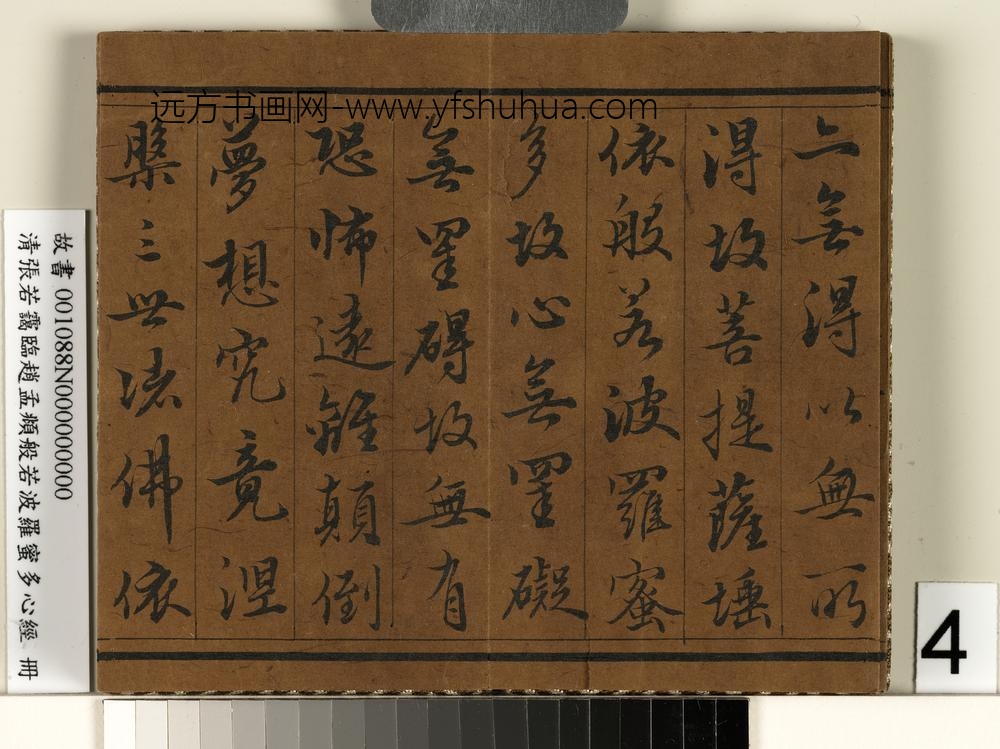 远方书画网-www.yfshuhua.com
亦無得以無所
得故菩提薩埵
依般若波羅蜜
多故心無罣礙
無罣碍故無有
恐怖遠離顛倒
夢想究竟涅
槃三世諸佛依
故書001088N000000000
清張若靄臨趙孟頫般若波羅蜜多心經 冊
4